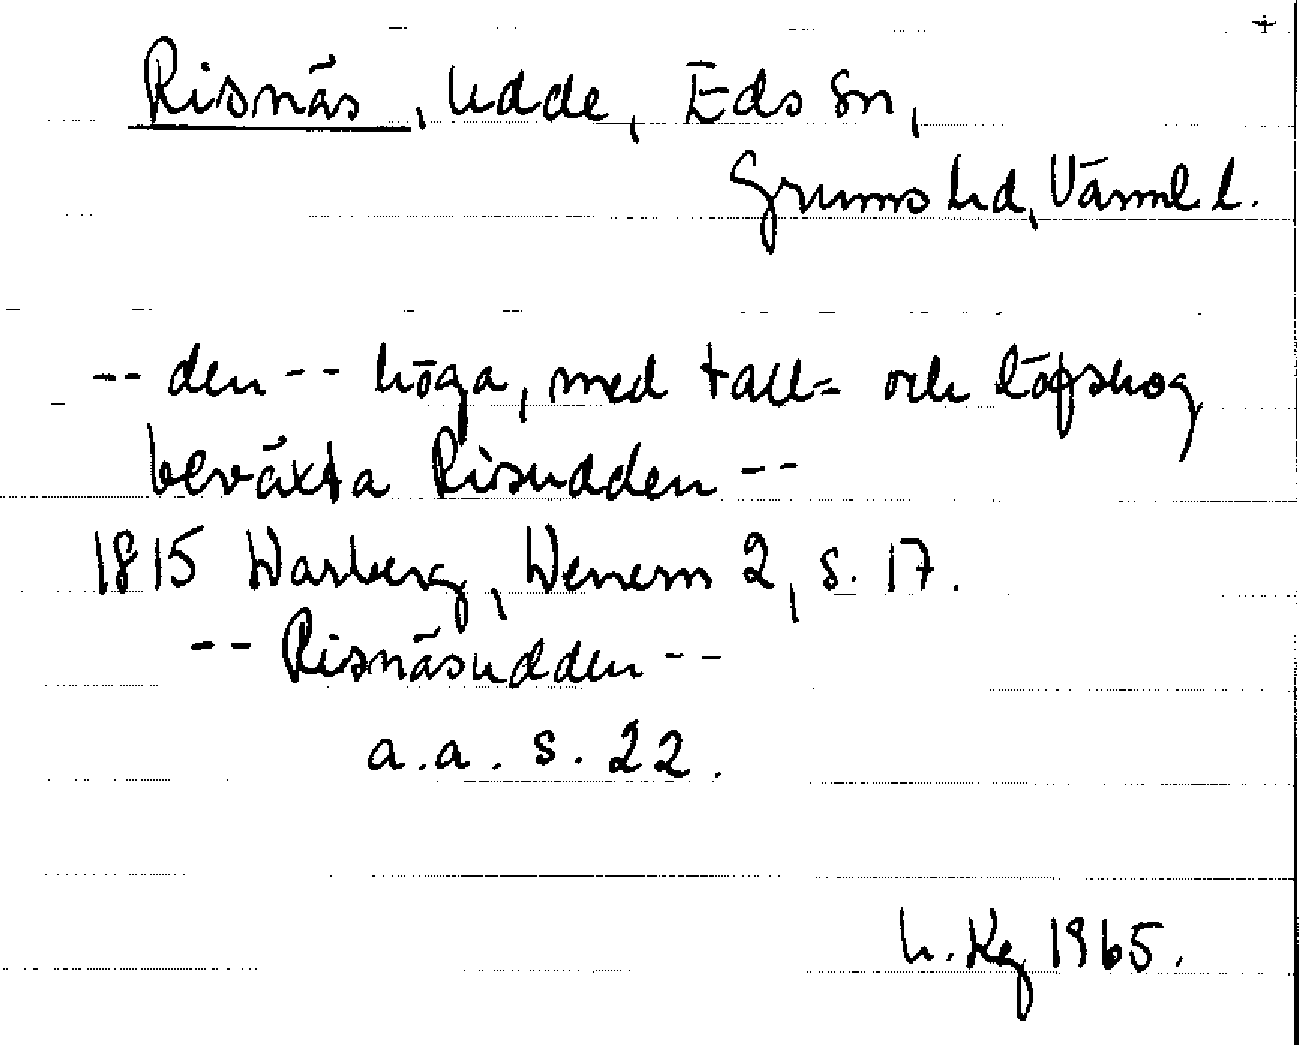 +
Risnäs, udde, Eds sn,
Grums hd, Värml. l.
-- den -- höga, med tall= och löfskog
beväxta Risudden --
1815 Warberg, Wenern 2, s. 17.
-- Risnäsudden --
a.a. s. 22.
h. Kg 1965.